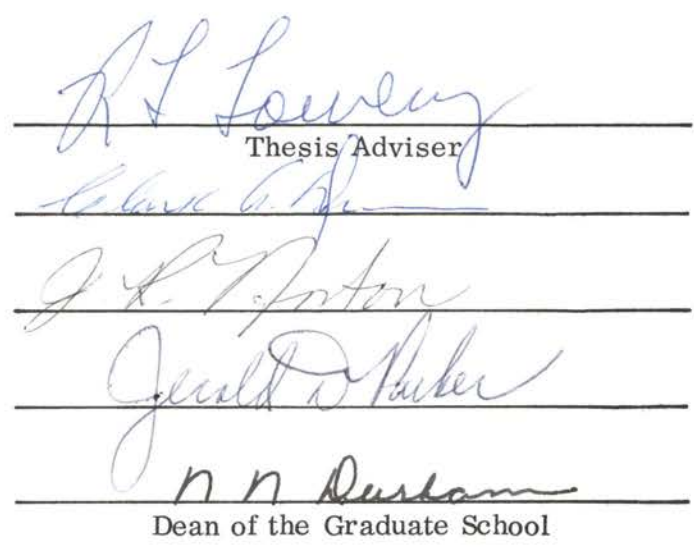 R L Lowery
Thesis Adviser
J. R. Norton
Jerald D Parker
N N Durham
Dean of the Graduate School